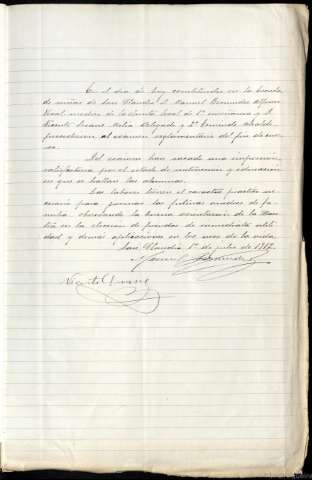 En el día de hoy constituidos en la escuela
de niñas de San Claudio D. Manuel Fernandez Alfonso
Vocal miembro de la Junta local de 1ª enseñanza y D.
Vicente Suarez Delegado y 2º Teniente Alcalde
presenciaron el examen reglamentario del fin de curso.
Del examen han sacado una impresión
satisfactoria por el estado de instrucción y educación
en que se hallan las alumnas.
Las labores tienen el caracter práctico ne
cesario para formar las futuras madres de fa
milia, observando la buena orientación de la Maes
tra en la eleccion de prendas de inmediata utili
dad y demas aplicaciones en los usos de la vida.
San Claudio 1º de julio de
Manuel Fernandez
Vicente Suarez